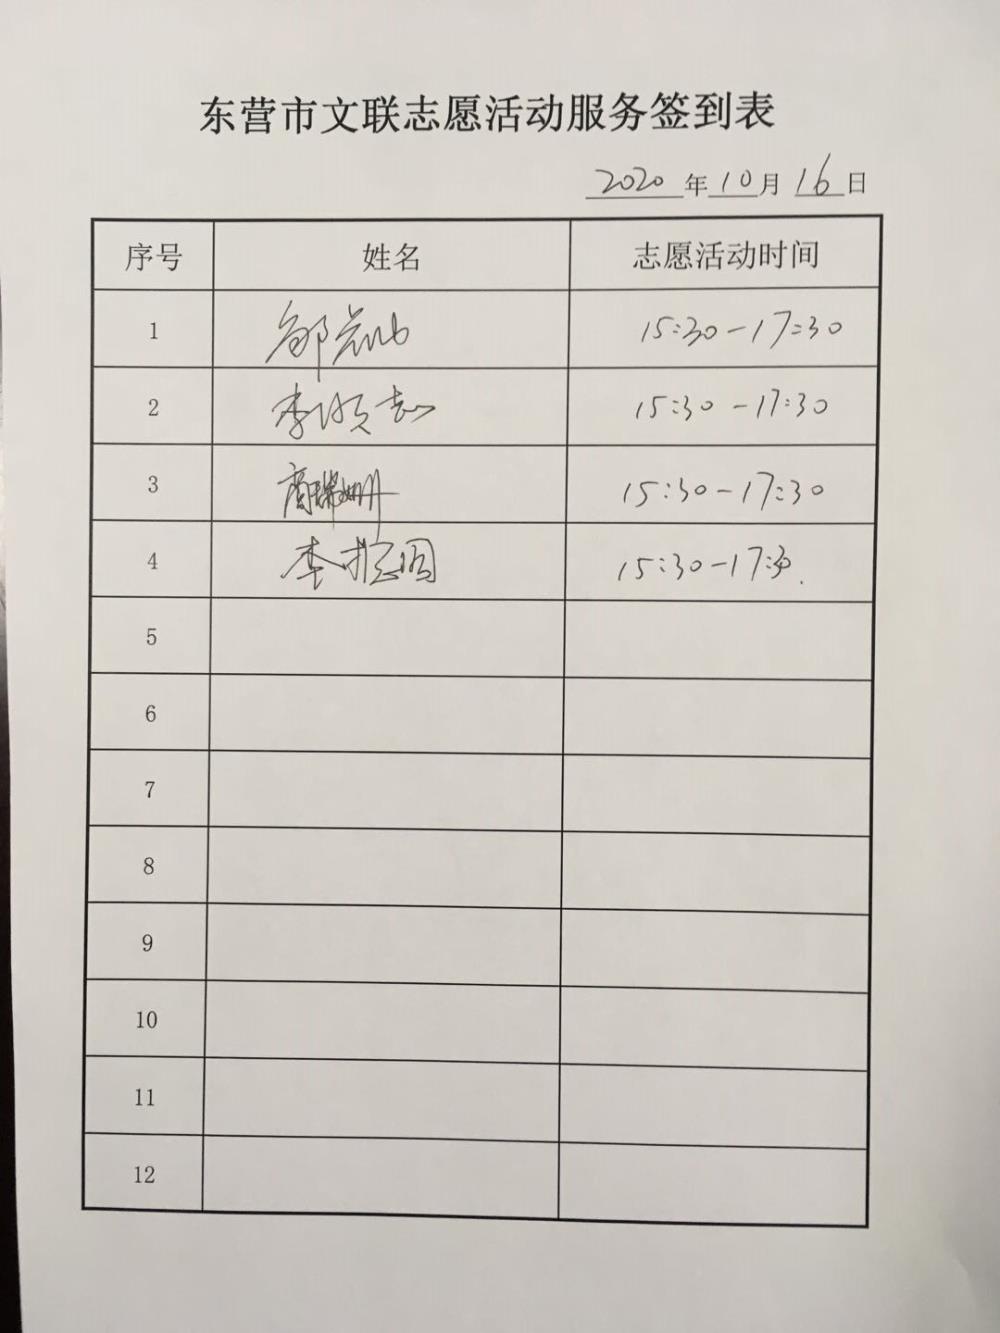 东营市文联志愿活动服务签到表
2020年10月16日
序号 姓名 志愿活动时间
1 15:30-17:30
2 李 志 15:30-17:30
3 商瑞姗 15:30-17:30
4 李 15:30-17:30.
5
6
7
8
9
10
11
12